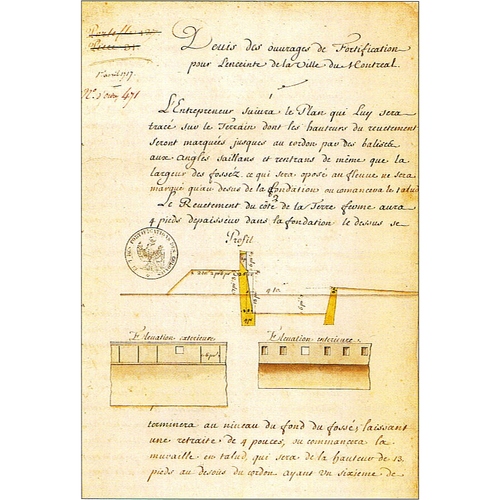 1er avril 1717.
Nº d'ordre 471
Devis des ouvrages de Fortification
pour Lenceinte de la Ville du Montreal.
L'Entrepreneur suivra le Plan qui Luy sera
tracé sur le Terrain dont les hauteurs du revetement
seront marquées jusques au cordon par des balises
aux angles saillans et rentrans de même que la
largeur des fossez, ce qui sera oposé au fleuve ne sera
marqué qu'au desus de la fondation ou comancera le talud
Le Revetement du côté de la Terre ferme aura
4 pieds depaisseur dans la fondation le dessus se
Profil
Élevation exterieure
Élevation interieure
terminera au niveau du fond du fossé; laissant
une retraite de 4 pouces, ou commancera la
muraille en talud, qui sera de la hauteur de 13
pieds au desous du cordon ayant un sixieme de